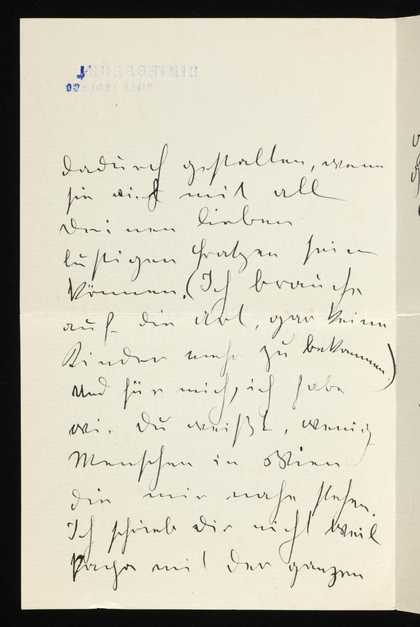 dadurch gestalten, wenn
sie mit all
Deinen lieben
lustigen Fratzen sein
können. (Ich brauche
auf die Art, gar keine
Kinder mehr zu bekommen)
Und für mich, ich habe
wie Du weißt, wenig
Menschen in Wien
die mir nahe stehen.
Ich schrieb Dir nicht weil
Papa mit der ganzen